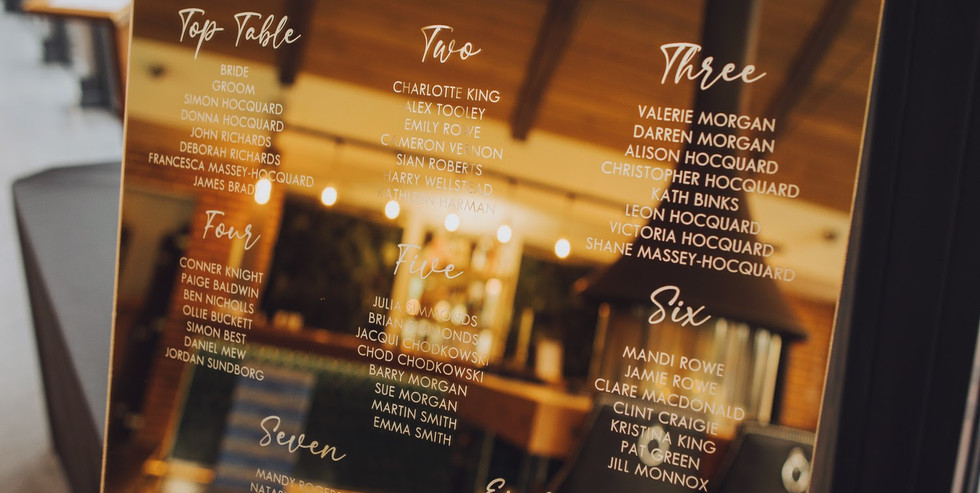 Top Table
BRIDE
GROOM
SIMON HOCQUARD
DONNA HOCQUARD
JOHN RICHARDS
DEBORAH RICHARDS
FRANCESCA MASSEY-HOCQUARD
JAMES
Two
CHARLOTTE KING
ALEX TOOLEY
EMILY ROWE
CAMERON VERNON
SIAN ROBERTS
HARRY WELLSTEAD
HARMAN
Three
VALERIE MORGAN
DARREN MORGAN
ALISON HOCQUARD
CHRISTOPHER HOCQUARD
KATH BINKS
LEON HOCQUARD
VICTORIA HOCQUARD
SHANE MASSEY-HOCQUARD
Four
CONNER KNIGHT
PAIGE BALDWIN
BEN NICHOLLS
OLLIE BUCKETT
SIMON BEST
DANIEL MEW
JORDAN SUNDBORG
Five
JULIA SIMMONDS
BRIAN
JACQUI CHODKOWSKI
CHOD CHODKOWSKI
BARRY MORGAN
SUE MORGAN
MARTIN SMITH
EMMA SMITH
Six
MANDI ROWE
JAMIE ROWE
CLARE MACDONALD
CLINT CRAIGIE
KRISTINA KING
PAT GREEN
JILL MONNOX
Seven
MANDY ROGERS